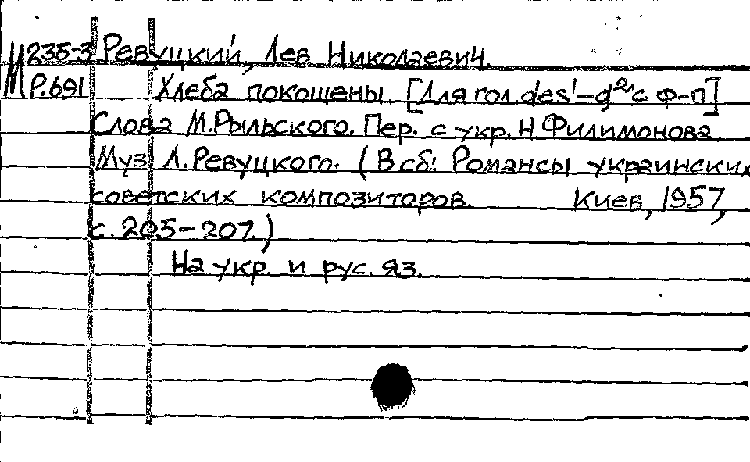 М 235-3 Ревуцкий, Лев Николаевич.
Р.691 Хлеба покошены. [Для гол. des¹-g² с ф-п]
Слова М.Рыльского. Пер. с укр. Н.Филимонова
Муз. Л.Ревуцкого. (В сб: Романсы украинских
советских композиторов. Киев, 1957,
с. 205-207.)
На укр. и рус. яз.